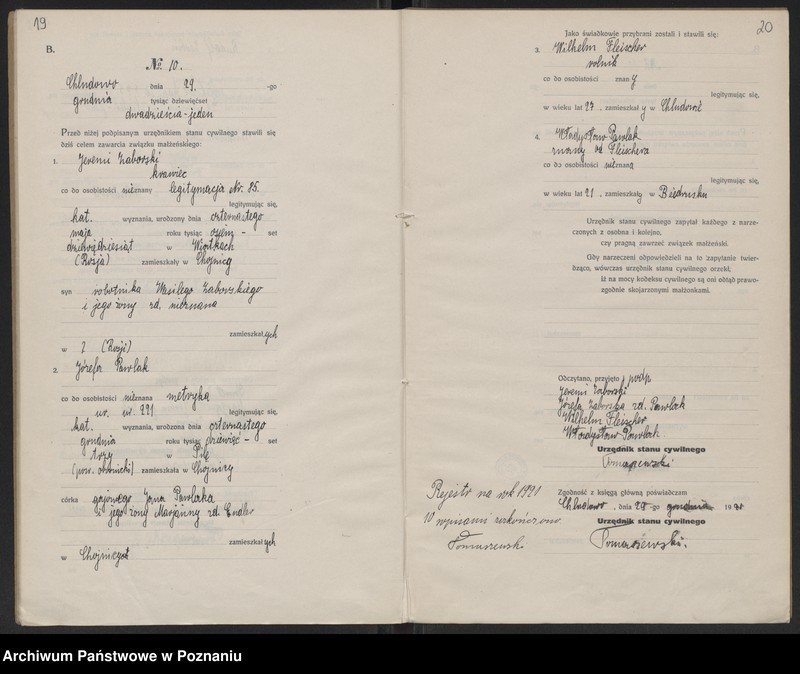 19
B.
№ 10.
Chludowo dnia 29. -go
grudnia tysiąc dziewięćset
dwadzieścia-jeden
Przed niżej podpisanym urzędnikiem stanu cywilnego stawili się
dziś celem zawarcia związku małżeńskiego:
1. Jeremi Zaborski
krawiec
co do osobistości nieznany legitymacja Nr. 85.
legitymując się,
kat. wyznania, urodzony dnia czternastego
maja roku tysiąc ośm- set
dziewięćdziesiąt w
(Rosja) zamieszkały w Chojnicy
syn robotnika Wasilego Zaborskiego
i jego żony zd. nieznana
zamieszkałych
w ? (Rosji)
2. Józefa Pawlak
co do osobistości nieznana metryka
ur. nr. 291 legitymując się,
kat. wyznania, urodzona dnia czternastego
grudnia roku tysiąc dziewięć- set
trzy w
(pow. obornicki) zamieszkała w Chojnicy
córka gajowego Jana Pawlaka
i jego żony Marjanny zd.
zamieszkałych
w
20
Jako świadkowie przybrani zostali i stawili się:
3. Wilhelm Fleischer
rolnik
co do osobistości znany
legitymując się,
w wieku lat 27. zamieszkały w
4. Władysław Pawlak
znany od Fleischera
co do osobistości nieznana
legitymując się,
w wieku lat 21. zamieszkały w Biedrusku
Urzędnik stanu cywilnego zapytał każdego z narze-
czonych z osobna i kolejno,
czy pragną zawrzeć związek małżeński.
Gdy narzeczeni odpowiedzieli na to zapytanie twier-
dząco, wówczas urzędnik stanu cywilnego orzekł,
iż na mocy kodeksu cywilnego są oni odtąd prawo-
zgodnie skojarzonymi małżonkami.
Odczytano, przyjęto i podp.
Jeremi Zaborski
Józefa Zaborska zd. Pawlak
Wilhelm Fleischer
Władysław Pawlak.
Urzędnik stanu cywilnego
Tomaszewski
Zgodność z księgą główną poświadczam
Chludowo, dnia 29-go grudnia 1921
Urzędnik stanu cywilnego
Tomaszewski.
Rejestr na rok 1921
10 wpisami zakończono
Tomaszewski
Archiwum Państwowe w Poznaniu